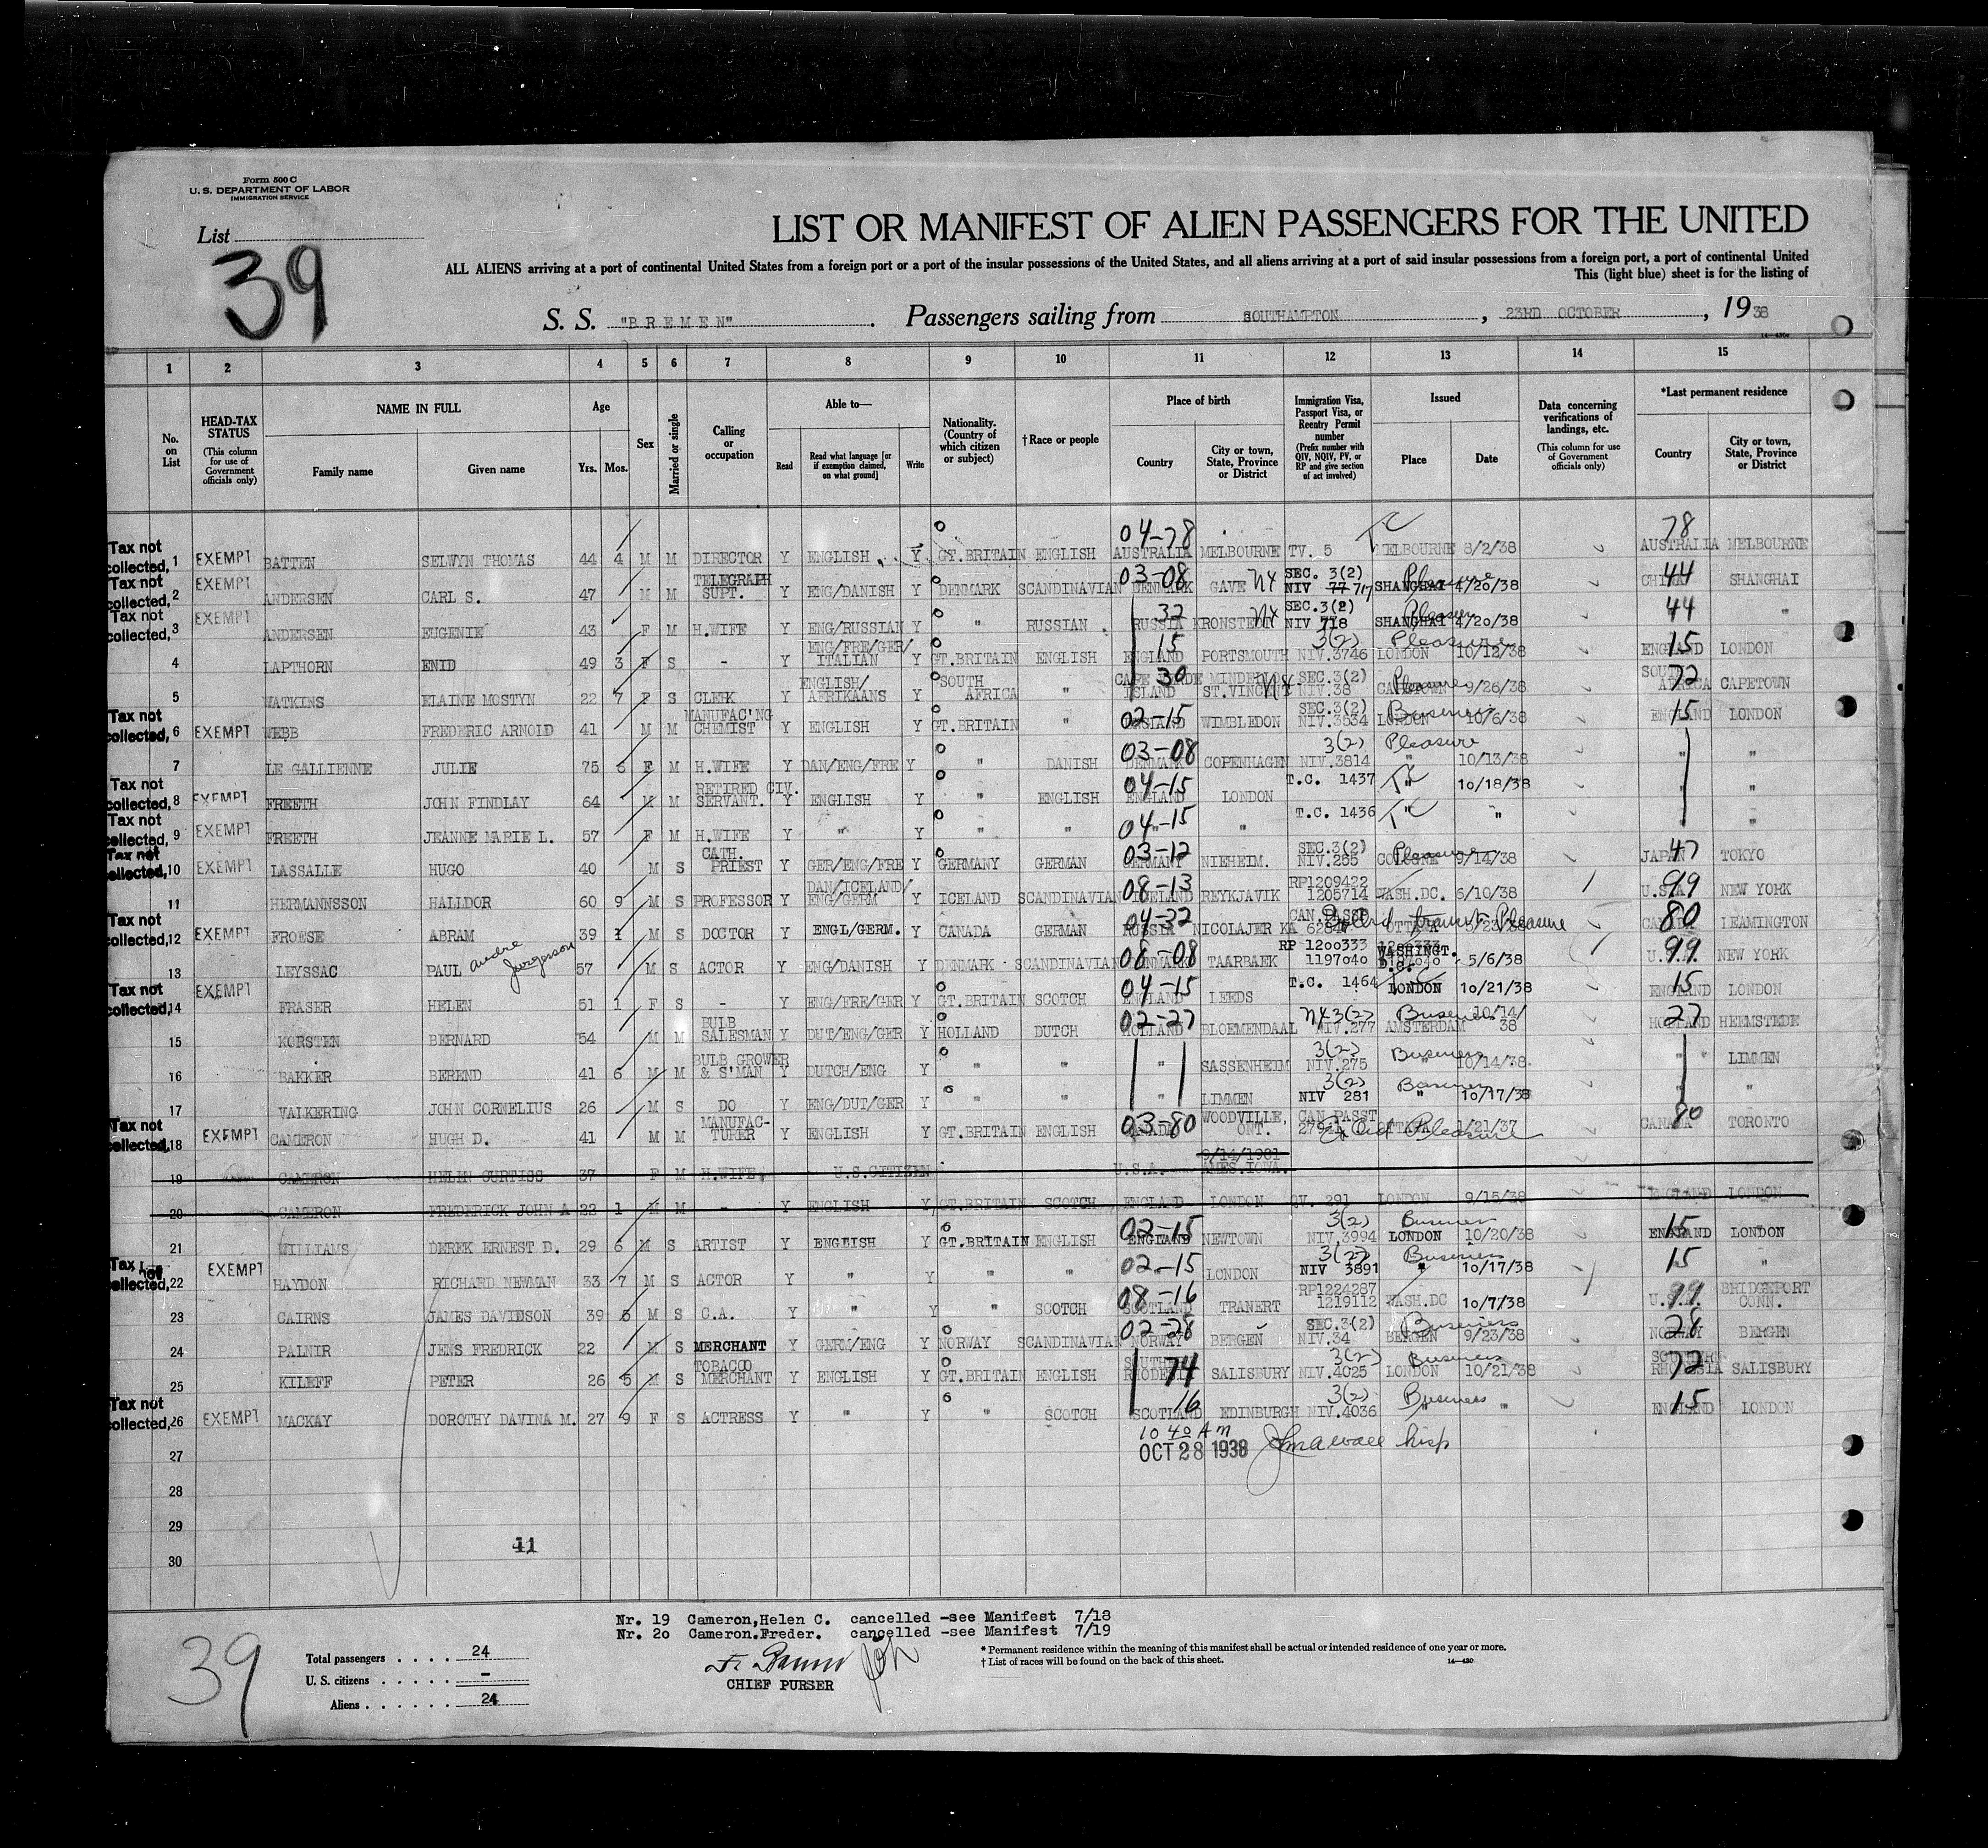 Form 500 C
U. S. DEPARTMENT OF LABOR
IMMIGRATION SERVICE
List
39
LIST OR MANIFEST OF ALIEN PASSENGERS FOR THE UNITED
ALL ALIENS arriving at a port of continental United States from a foreign port or a port of the insular possessions of the United States, and all aliens arriving at a port of said insular possessions from a foreign port, a port of continental United
This (light blue) sheet is for the listing of
S. S. "BREMEN". Passengers sailing from SOUTHAMPTON, 23RD OCTOBER, 1938
1 2 3 4 5 6 7 8 9 10 11 12 13 14 15
No. on List
HEAD-TAX STATUS (This column for use of Government officials only)
NAME IN FULL Family name Given name
Age Yrs. Mos.
Sex
Married or single
Calling or occupation
Able to— Read Read what language [or if exemption claimed, on what ground] Write
Nationality. (Country of which citizen or subject)
† Race or people
Place of birth Country City or town, State, Province or District
Immigration Visa, Passport Visa, or Reentry Permit number (Prefix number with QIV, NQIV, PV, or RP and give section of act involved)
Issued Place Date
Data concerning verifications of landings, etc. (This column for use of Government officials only)
*Last permanent residence Country City or town, State, Province or District
Tax not collected, 1 EXEMPT BATTEN SELWYN THOMAS 44 4 M M DIRECTOR Y ENGLISH Y GT.BRITAIN ENGLISH 04-78 AUSTRALIA MELBOURNE TV. 5 MELBOURNE 8/2/38 78 AUSTRALIA MELBOURNE
Tax not collected, 2 EXEMPT ANDERSEN CARL S. 47 M M TELEGRAPH SUPT. Y ENG/DANISH Y DENMARK SCANDINAVIAN 03-08 DENMARK GAVE SEC. 3(2) NIV 77 717 SHANGHAI Pleasure 4/20/38 CHINA 44 SHANGHAI
Tax not collected, 3 EXEMPT ANDERSEN EUGENIE 43 F M H.WIFE Y ENG/RUSSIAN Y " RUSSIAN 32 RUSSIA SEC.3(2) NIV 718 SHANGHAI Pleasure 4/20/38 44 "
4 LAPTHORN ENID 49 3 F S - Y ENG/FRE/GER/ ITALIAN Y GT.BRITAIN ENGLISH 15 ENGLAND PORTSMOUTH 3(2) NIV.3746 LONDON Pleasure 10/12/38 15 ENGLAND LONDON
5 WATKINS ELAINE MOSTYN 22 7 F S CLERK Y ENGLISH/ AFRIKAANS Y SOUTH AFRICA " 30 ISLAND SEC.3(2) NIV.38 CAPETOWN Pleasure 9/26/38 SOUTH AFRICA 72 CAPETOWN
Tax not collected, 6 EXEMPT WEBB FREDERIC ARNOLD 41 M M MANUFAC'NG CHEMIST Y ENGLISH Y GT.BRITAIN " 02-15 ENGLAND WIMBLEDON SEC.3(2) NIV.3534 LONDON Business 10/6/38 15 ENGLAND LONDON
7 LE GALLIENNE JULIE 75 6 F M H.WIFE Y DAN/ENG/FRE Y " DANISH 03-08 DENMARK COPENHAGEN 3(2) NIV.3814 Pleasure " 10/13/38 " "
Tax not collected, 8 EXEMPT FREETH JOHN FINDLAY 64 M M RETIRED CIV. SERVANT. Y ENGLISH Y " ENGLISH 04-15 ENGLAND LONDON T.C. 1437 " 10/18/38 " "
Tax not collected, 9 EXEMPT FREETH JEANNE MARIE L. 57 F M H.WIFE Y " Y " " 04-15 " " T.C. 1436 " " "
Tax not collected, 10 EXEMPT LASSALLE HUGO 40 M S CATH. PRIEST Y GER/ENG/FRE Y GERMANY GERMAN 03-12 GERMANY NIEHEIM. SEC.3(2) NIV.255 COLOGNE Pleasure 9/14/38 JAPAN 47 TOKYO
11 HERMANNSSON HALLDOR 60 9 M S PROFESSOR Y DAN/ICELAND/ ENG/GERM Y ICELAND SCANDINAVIAN 08-13 ICELAND REYKJAVIK RP1209422 1205714 WASH.DC. 6/10/38 U.S.A. 99 NEW YORK
Tax not collected, 12 EXEMPT FROESE ABRAM 39 1 M S DOCTOR Y ENGL/GERM. Y CANADA GERMAN 04-32 RUSSIA NICOLAJER KA CAN.PASSP. OTTAWA transit Pleasure CANADA 80 LEAMINGTON
13 LEYSSAC PAUL Andre Jurgenson 57 M S ACTOR Y ENG/DANISH Y DENMARK SCANDINAVIAN 08-08 DENMARK TAARBAEK RP 1200333 1197040 WASHINGT. D.C. 5/6/38 U.S. 99 NEW YORK
Tax not collected, 14 EXEMPT FRASER HELEN 51 1 F S - Y ENG/FRE/GER Y GT.BRITAIN SCOTCH 04-15 ENGLAND LEEDS T.C. 1464 LONDON 10/21/38 15 ENGLAND LONDON
15 KORSTEN BERNARD 54 M M BULB SALESMAN Y DUT/ENG/GER Y HOLLAND DUTCH 02-27 HOLLAND BLOEMENDAAL 3(2) NIV.277 AMSTERDAM Business 10/14/ 38 27 HOLLAND HEEMSTEDE
16 BAKKER BEREND 41 6 M M BULB GROWER & S'MAN Y DUTCH/ENG Y " " " SASSENHEIM 3(2) NIV.275 Business " 10/14/38 " LIMMEN
17 VALKERING JOHN CORNELIUS 26 M S DO Y ENG/DUT/GER Y " " " LIMMEN 3(2) NIV 281 Business " 10/17/38 " "
Tax not collected, 18 EXEMPT CAMERON HUGH D. 41 M M MANUFAC- TURER Y ENGLISH Y GT.BRITAIN ENGLISH 03-80 CANADA WOODVILLE, ONT. CAN.PASST. OTTAWA Pleasure 1/21/37 CANADA 80 TORONTO
19 CAMERON HELEN CURTISS 37 F M H.WIFE. U.S.CITIZEN U.S.A. 9/14/1901 AMES.IOWA.
20 CAMERON FREDERICK JOHN A 22 1 M M - Y ENGLISH Y GT.BRITAIN SCOTCH ENGLAND LONDON QV. 291 LONDON 9/15/38 ENGLAND LONDON
21 WILLIAMS DEREK ERNEST D. 29 6 M S ARTIST Y ENGLISH Y GT.BRITAIN ENGLISH 02-15 ENGLAND NEWTOWN 3(2) NIV.3994 LONDON Business 10/20/38 15 ENGLAND LONDON
Tax not collected, 22 EXEMPT HAYDON RICHARD NEWMAN 33 7 M S ACTOR Y " Y " " 02-15 LONDON 3(2) NIV 3891 Business " 10/17/38 15 "
23 CAIRNS JAMES DAVIDSON 39 5 M S C.A. Y " Y " SCOTCH 08-16 SCOTLAND TRANERT RP1224287 1219112 WASH.DC 10/7/38 U.S. 99 BRIDGEPORT CONN.
24 PALNIR JENS FREDRICK 22 M S MERCHANT Y GERM/ENG Y NORWAY SCANDINAVIAN 02-28 NORWAY BERGEN SEC.3(2) NIV.34 BERGEN Business 9/23/38 NORWAY 28 BERGEN
25 KILEFF PETER 26 5 M S TOBACCO MERCHANT Y ENGLISH Y GT.BRITAIN ENGLISH 74 SOUTHERN RHODESIA SALISBURY 3(2) NIV.4025 LONDON Business 10/21/38 72 SOUTHERN RHODESIA SALISBURY
Tax not collected, 26 EXEMPT MACKAY DOROTHY DAVINA M. 27 9 F S ACTRESS Y " Y SCOTCH 16 SCOTLAND EDINBURGH 3(2) NIV.4036 Business " " 15 ENGLAND LONDON
10 40 AM
27 OCT 28 1938
28
29
41
30
Nr. 19 Cameron,Helen C. cancelled -see Manifest 7/18
Nr. 20 Cameron.Freder. cancelled -see Manifest 7/19
39
Total passengers . . . . 24
U. S. citizens . . . . . -
Aliens . . . . . . 24
CHIEF PURSER
* Permanent residence within the meaning of this manifest shall be actual or intended residence of one year or more.
† List of races will be found on the back of this sheet.
14—430